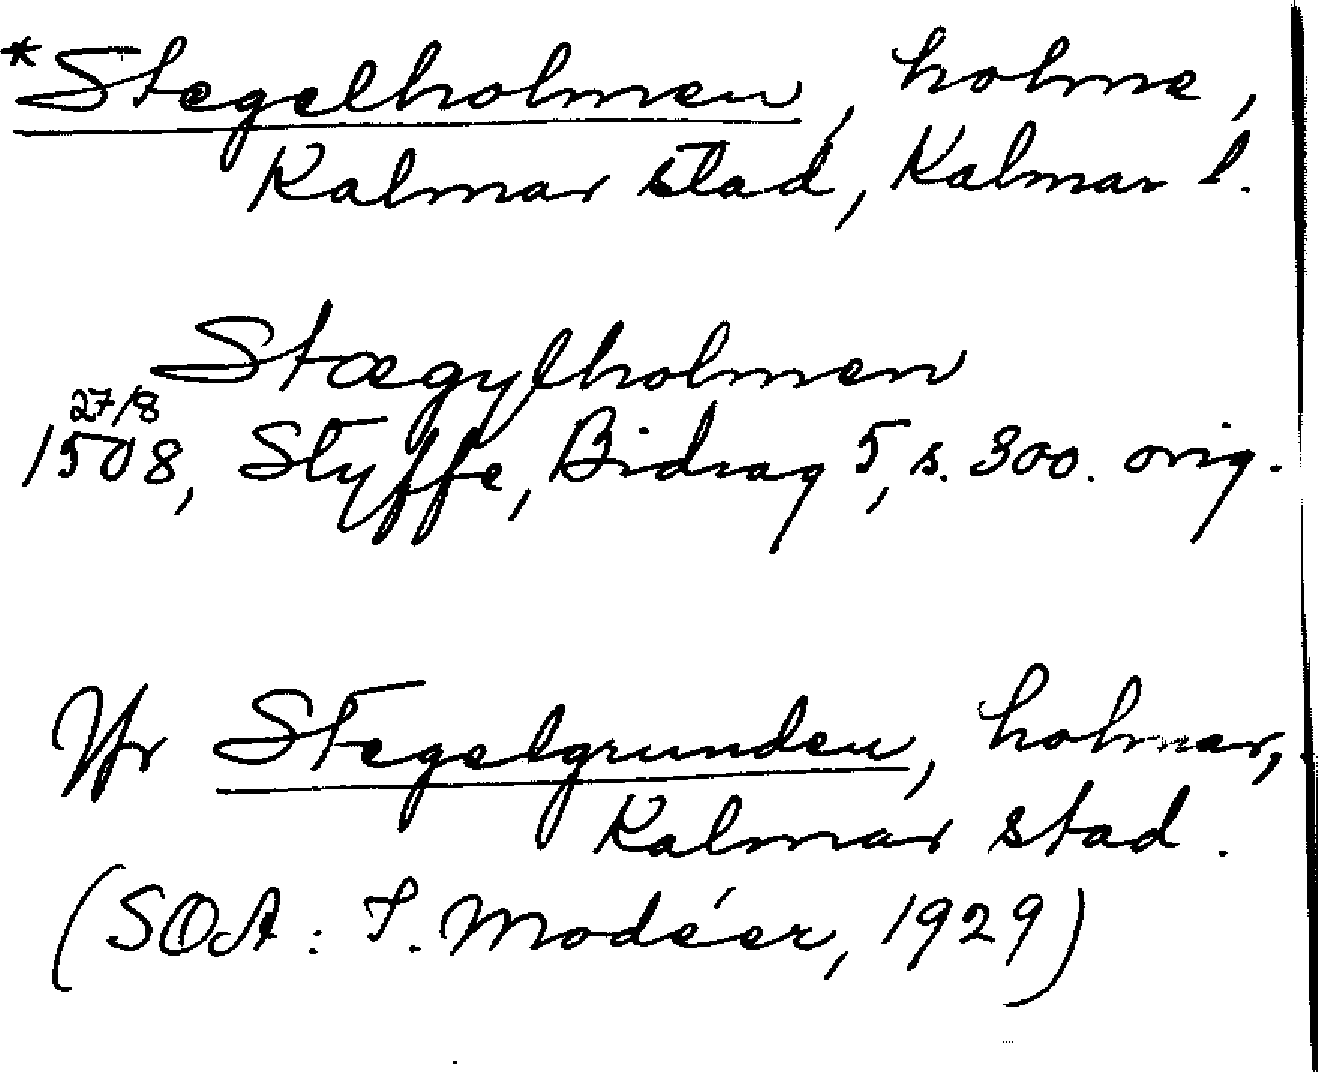 *Stegelholmen, holme,
Kalmar stad, Kalmar l.
Stægylholmen
27/8
1508, Styffe, Bidrag 5, s. 300. orig.
Jfr Stegelgrunden, holmar,
Kalmar stad.
(SOA: I. Modéer, 1929)